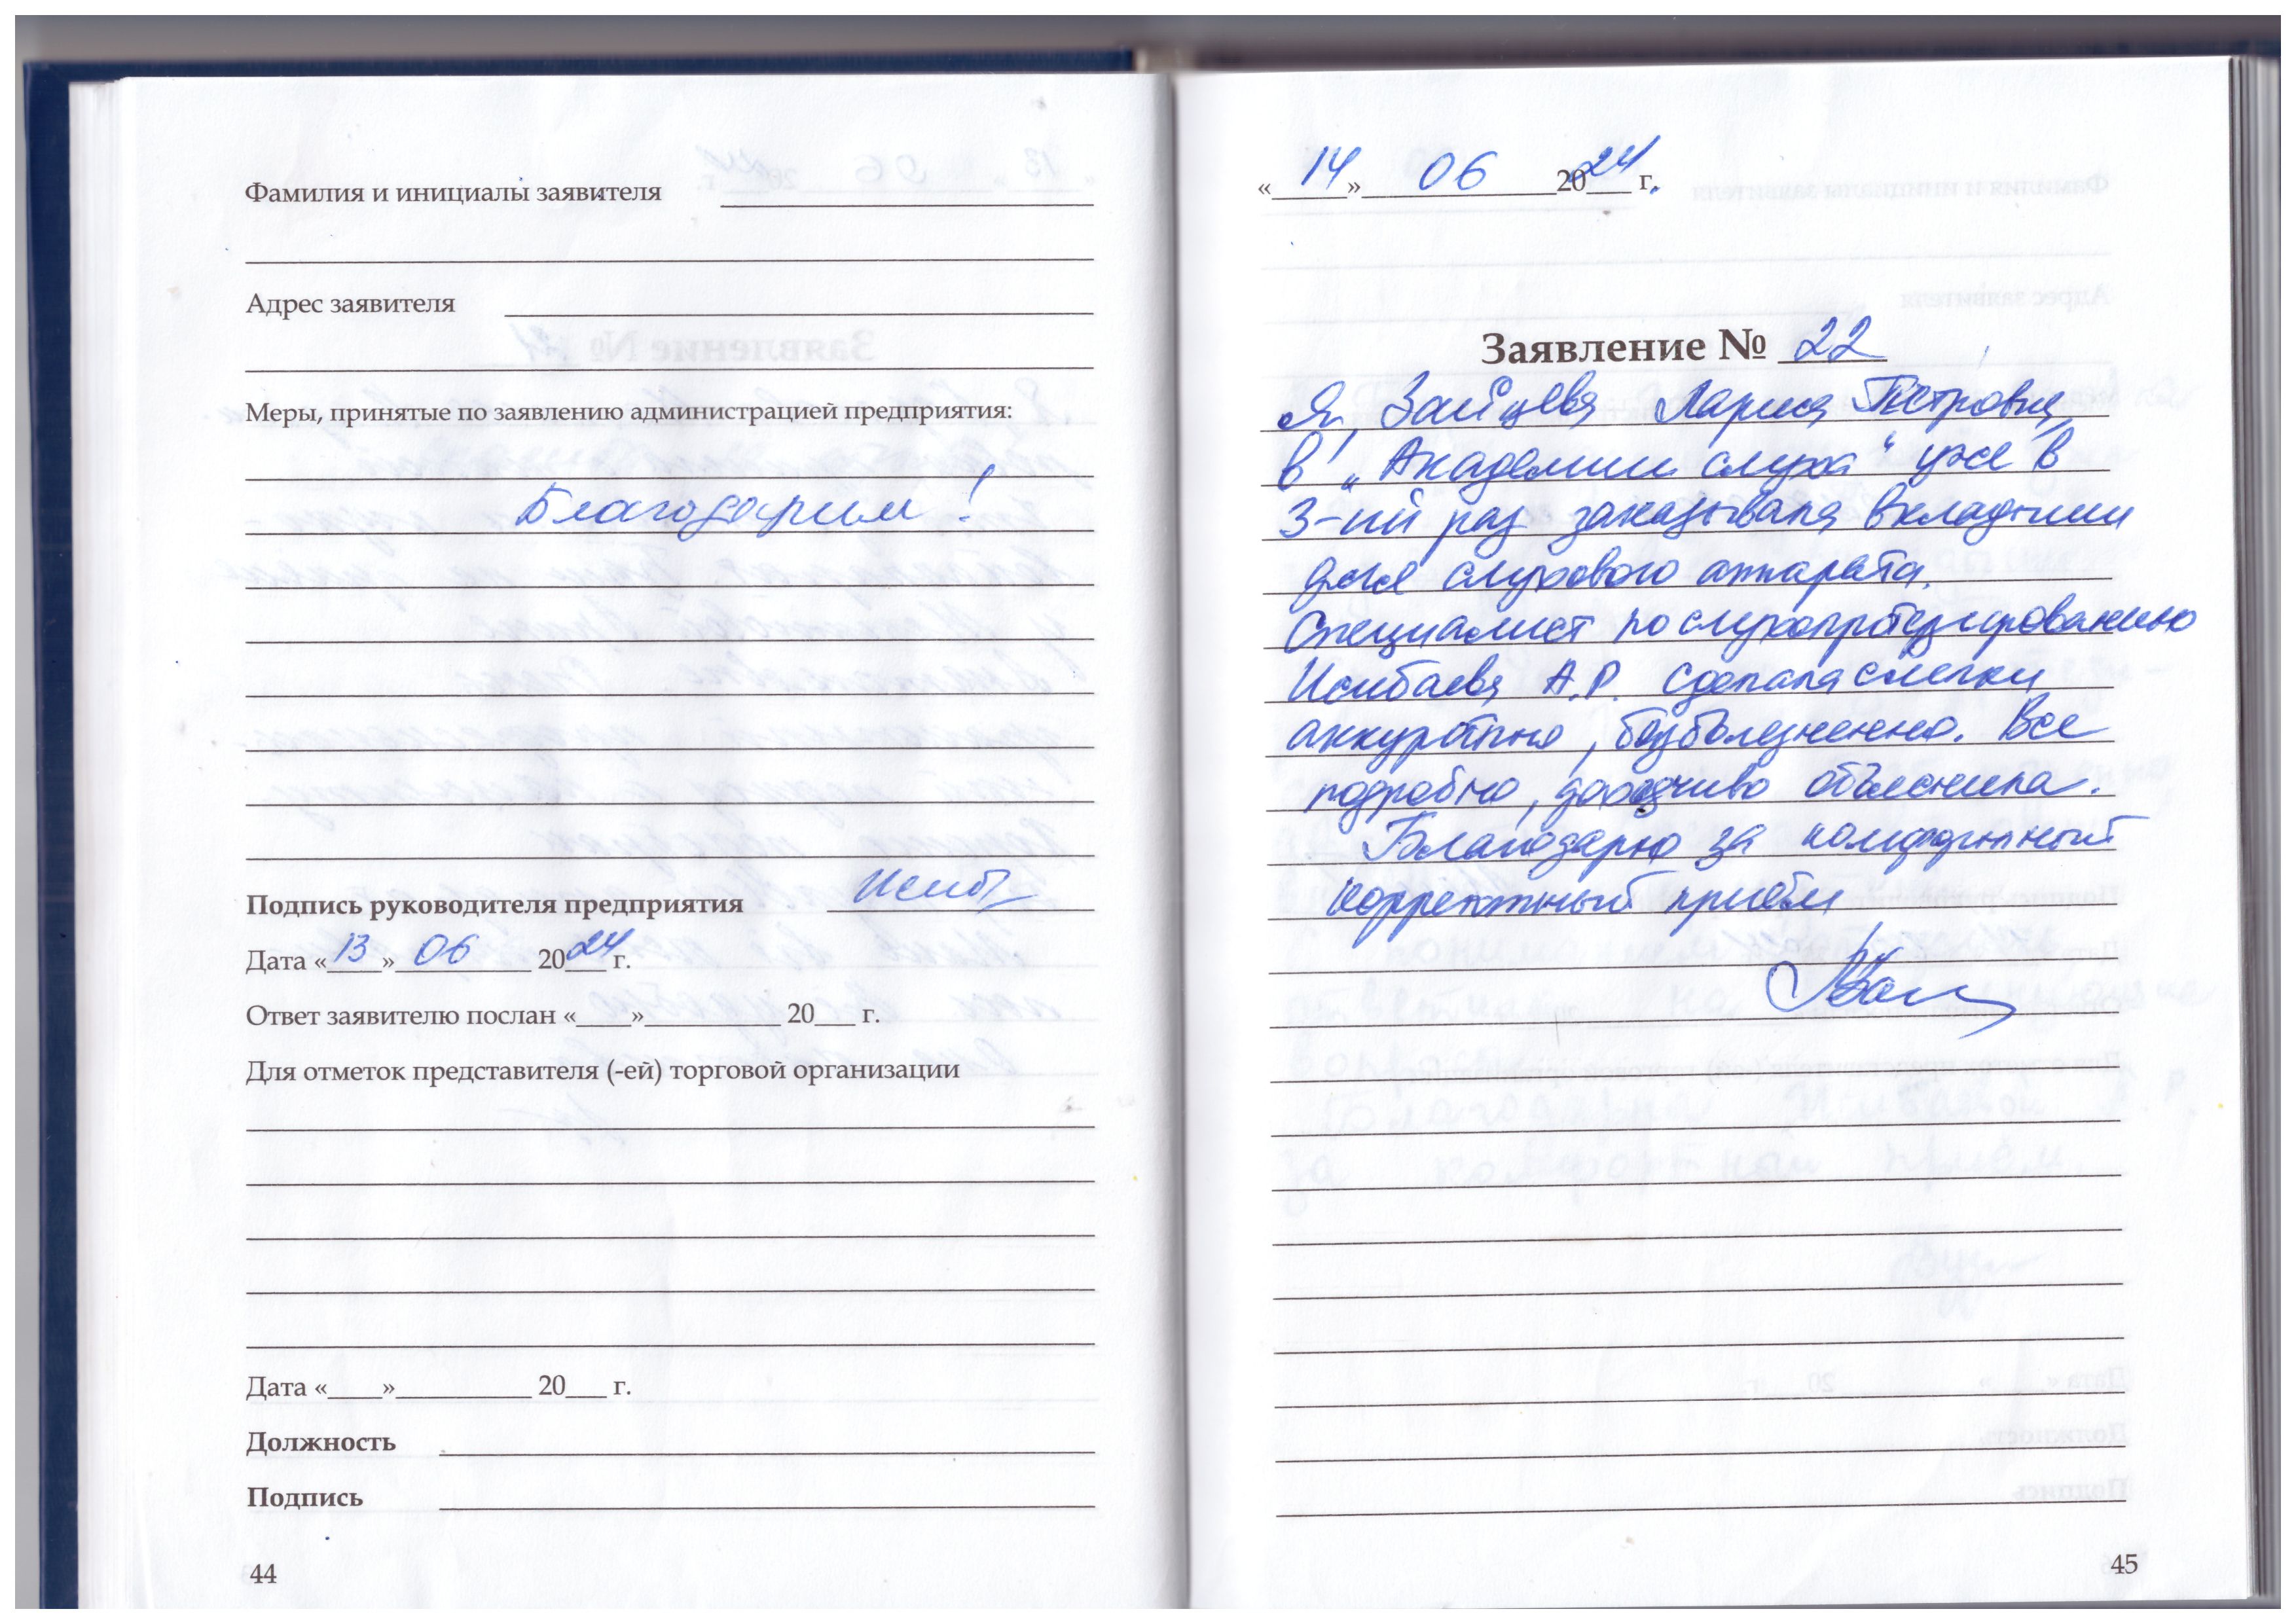 Фамилия и инициалы заявителя
Адрес заявителя
Меры, принятые по заявлению администрацией предприятия:
Благодарим!
Подпись руководителя предприятия
Дата «13» 06 2024 г.
Ответ заявителю послан «____»__________ 20___ г.
Для отметок представителя (-ей) торговой организации
Дата «____»__________ 20___ г.
Должность
Подпись
44
«14» 06 2024 г.
Заявление № 22
Я, Зайцева Лариса Петровна,
в „Академии слуха“ уже в
3-ий раз заказывала вкладыши
для слухового аппарата.
Специалист по слухопротезированию
Исибаева А.Р. сделала слепки
аккуратно, безболезненно. Все
подробно, доходчиво объяснила.
Благодарю за комфортный
корректный приём
45